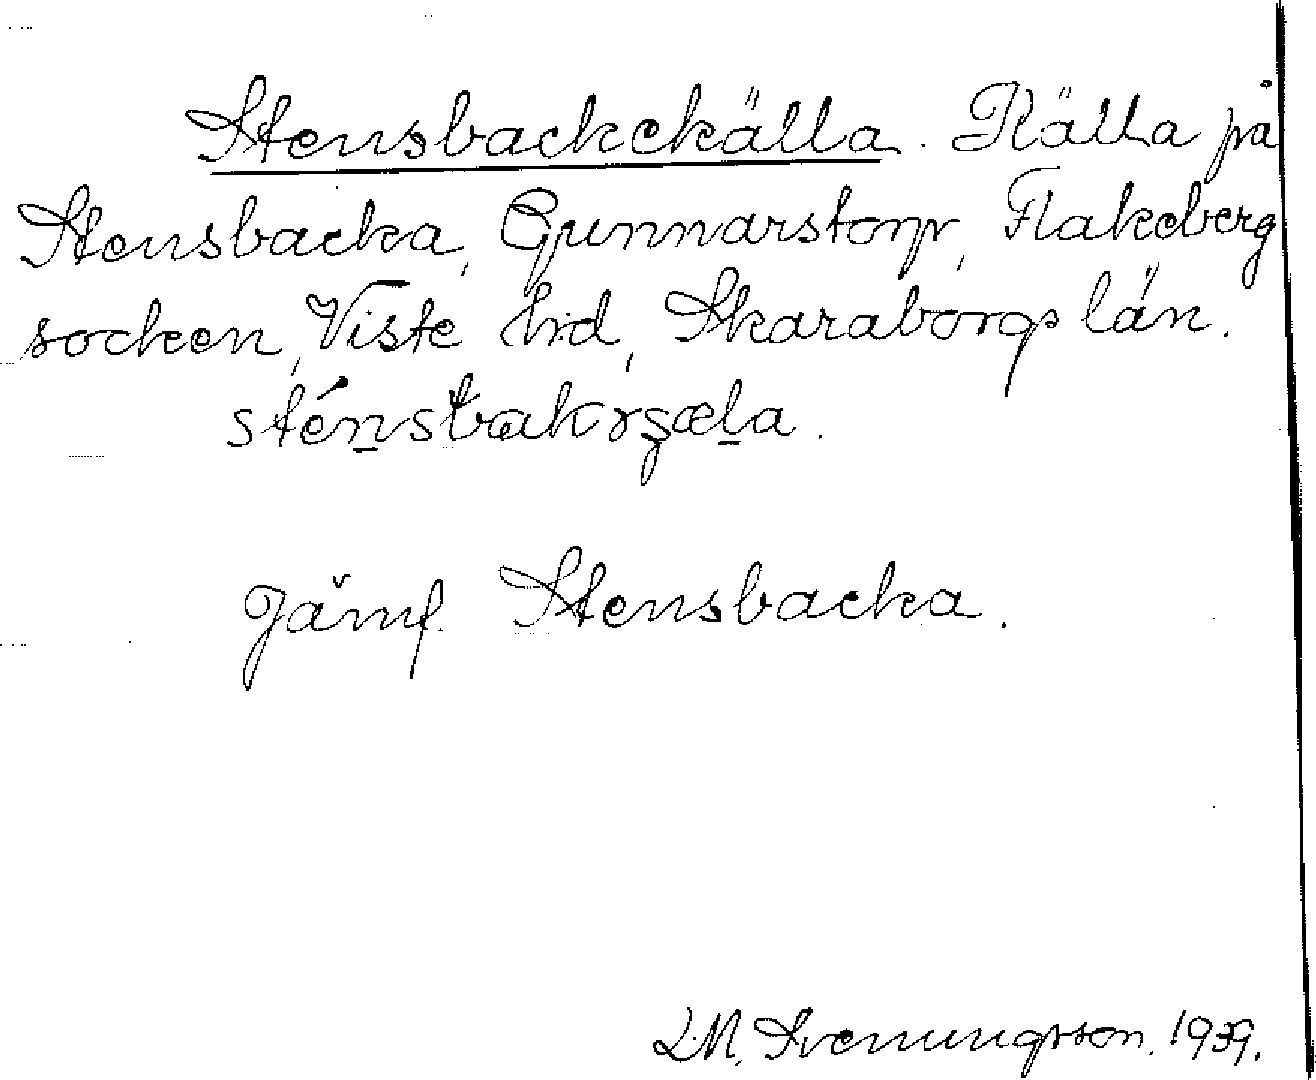 Stensbackekälla. Källa på
Stensbacka, Gunnarstorp, Flakeberg
socken, Viste hd, Skaraborgs län.
sténsbakɤʂæla.
Jämf. Stensbacka.
L.M. Svenungsson. 1939.